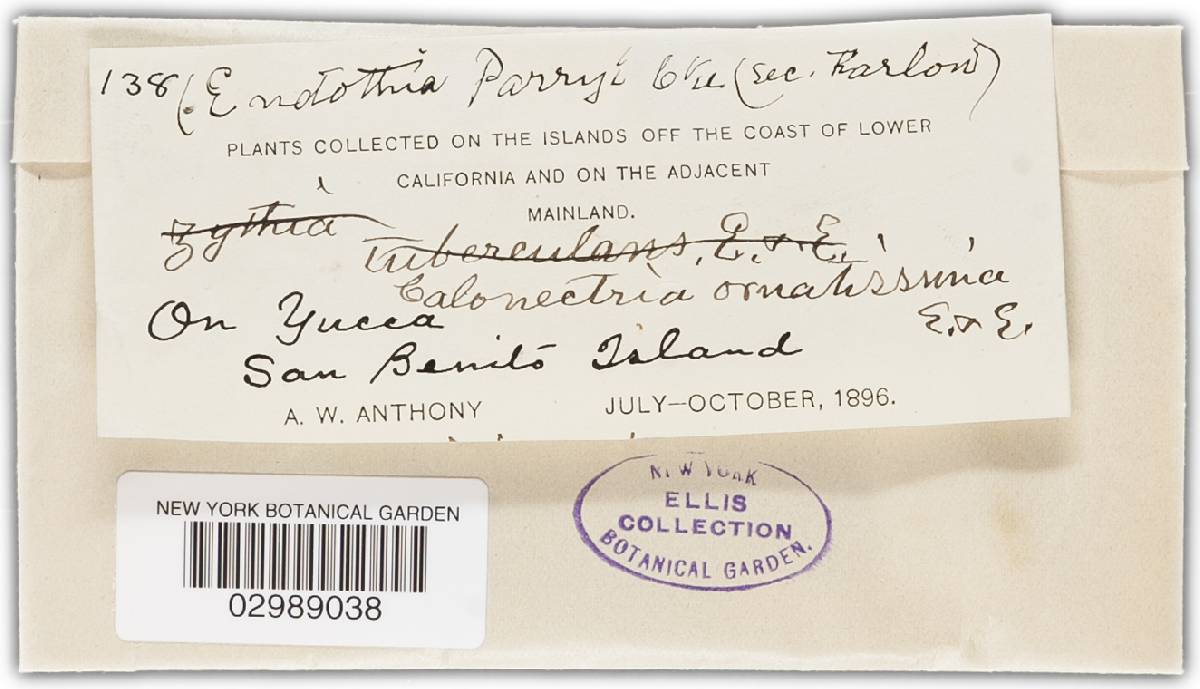 138 (Endothia Parryi Cke (sec. Farlow)
PLANTS COLLECTED ON THE ISLANDS OFF THE COAST OF LOWER
CALIFORNIA AND ON THE ADJACENT
MAINLAND.
Zythia
tuberculans, E. & E.
Calonectria ornatissima
E. & E.
On Yucca
San Benito Island
A. W. ANTHONY JULY—OCTOBER, 1896.
NEW YORK
ELLIS
COLLECTION
BOTANICAL GARDEN.
NEW YORK BOTANICAL GARDEN
02989038